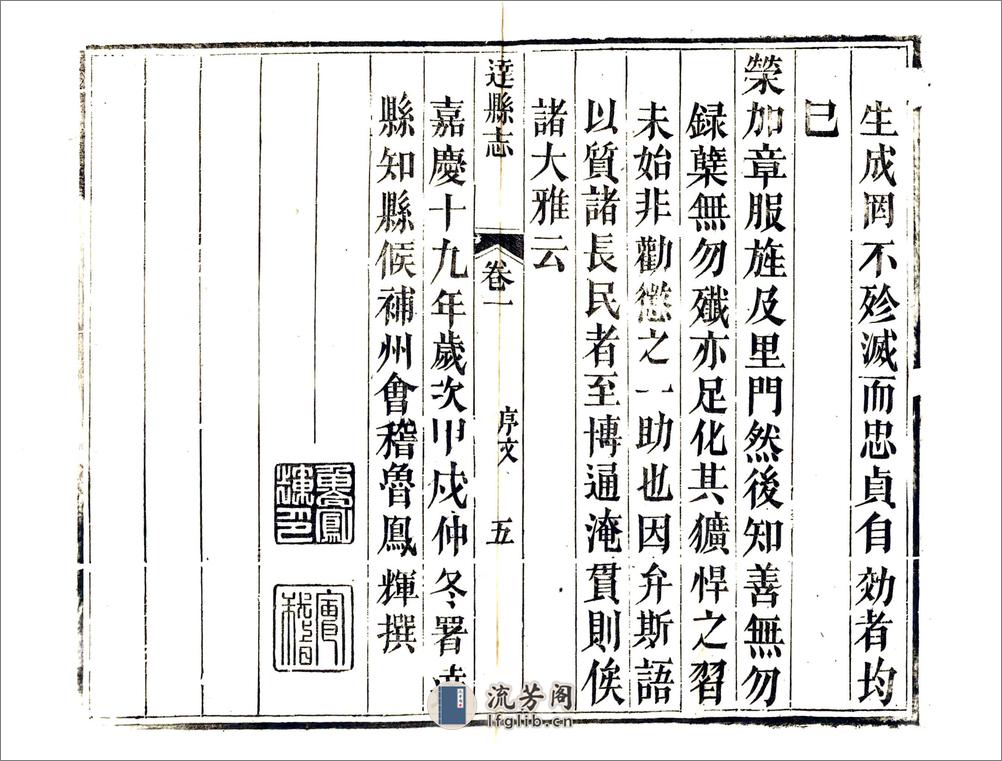 生成罔不殄滅而忠貞自効者均
已
榮加章服旌及里門然後知善無勿
録櫱無勿殲亦足化其獷悍之習
未始非勸懲之一助也因弁斯語
以質諸長民者至博通淹貫則俟
諸大雅云
達縣志 卷一 序文 五
嘉慶十九年歲次甲戌仲冬署達
縣知縣候補州會稽魯鳳輝撰
魯鳳輝印
流芳阁
lfglib.cn